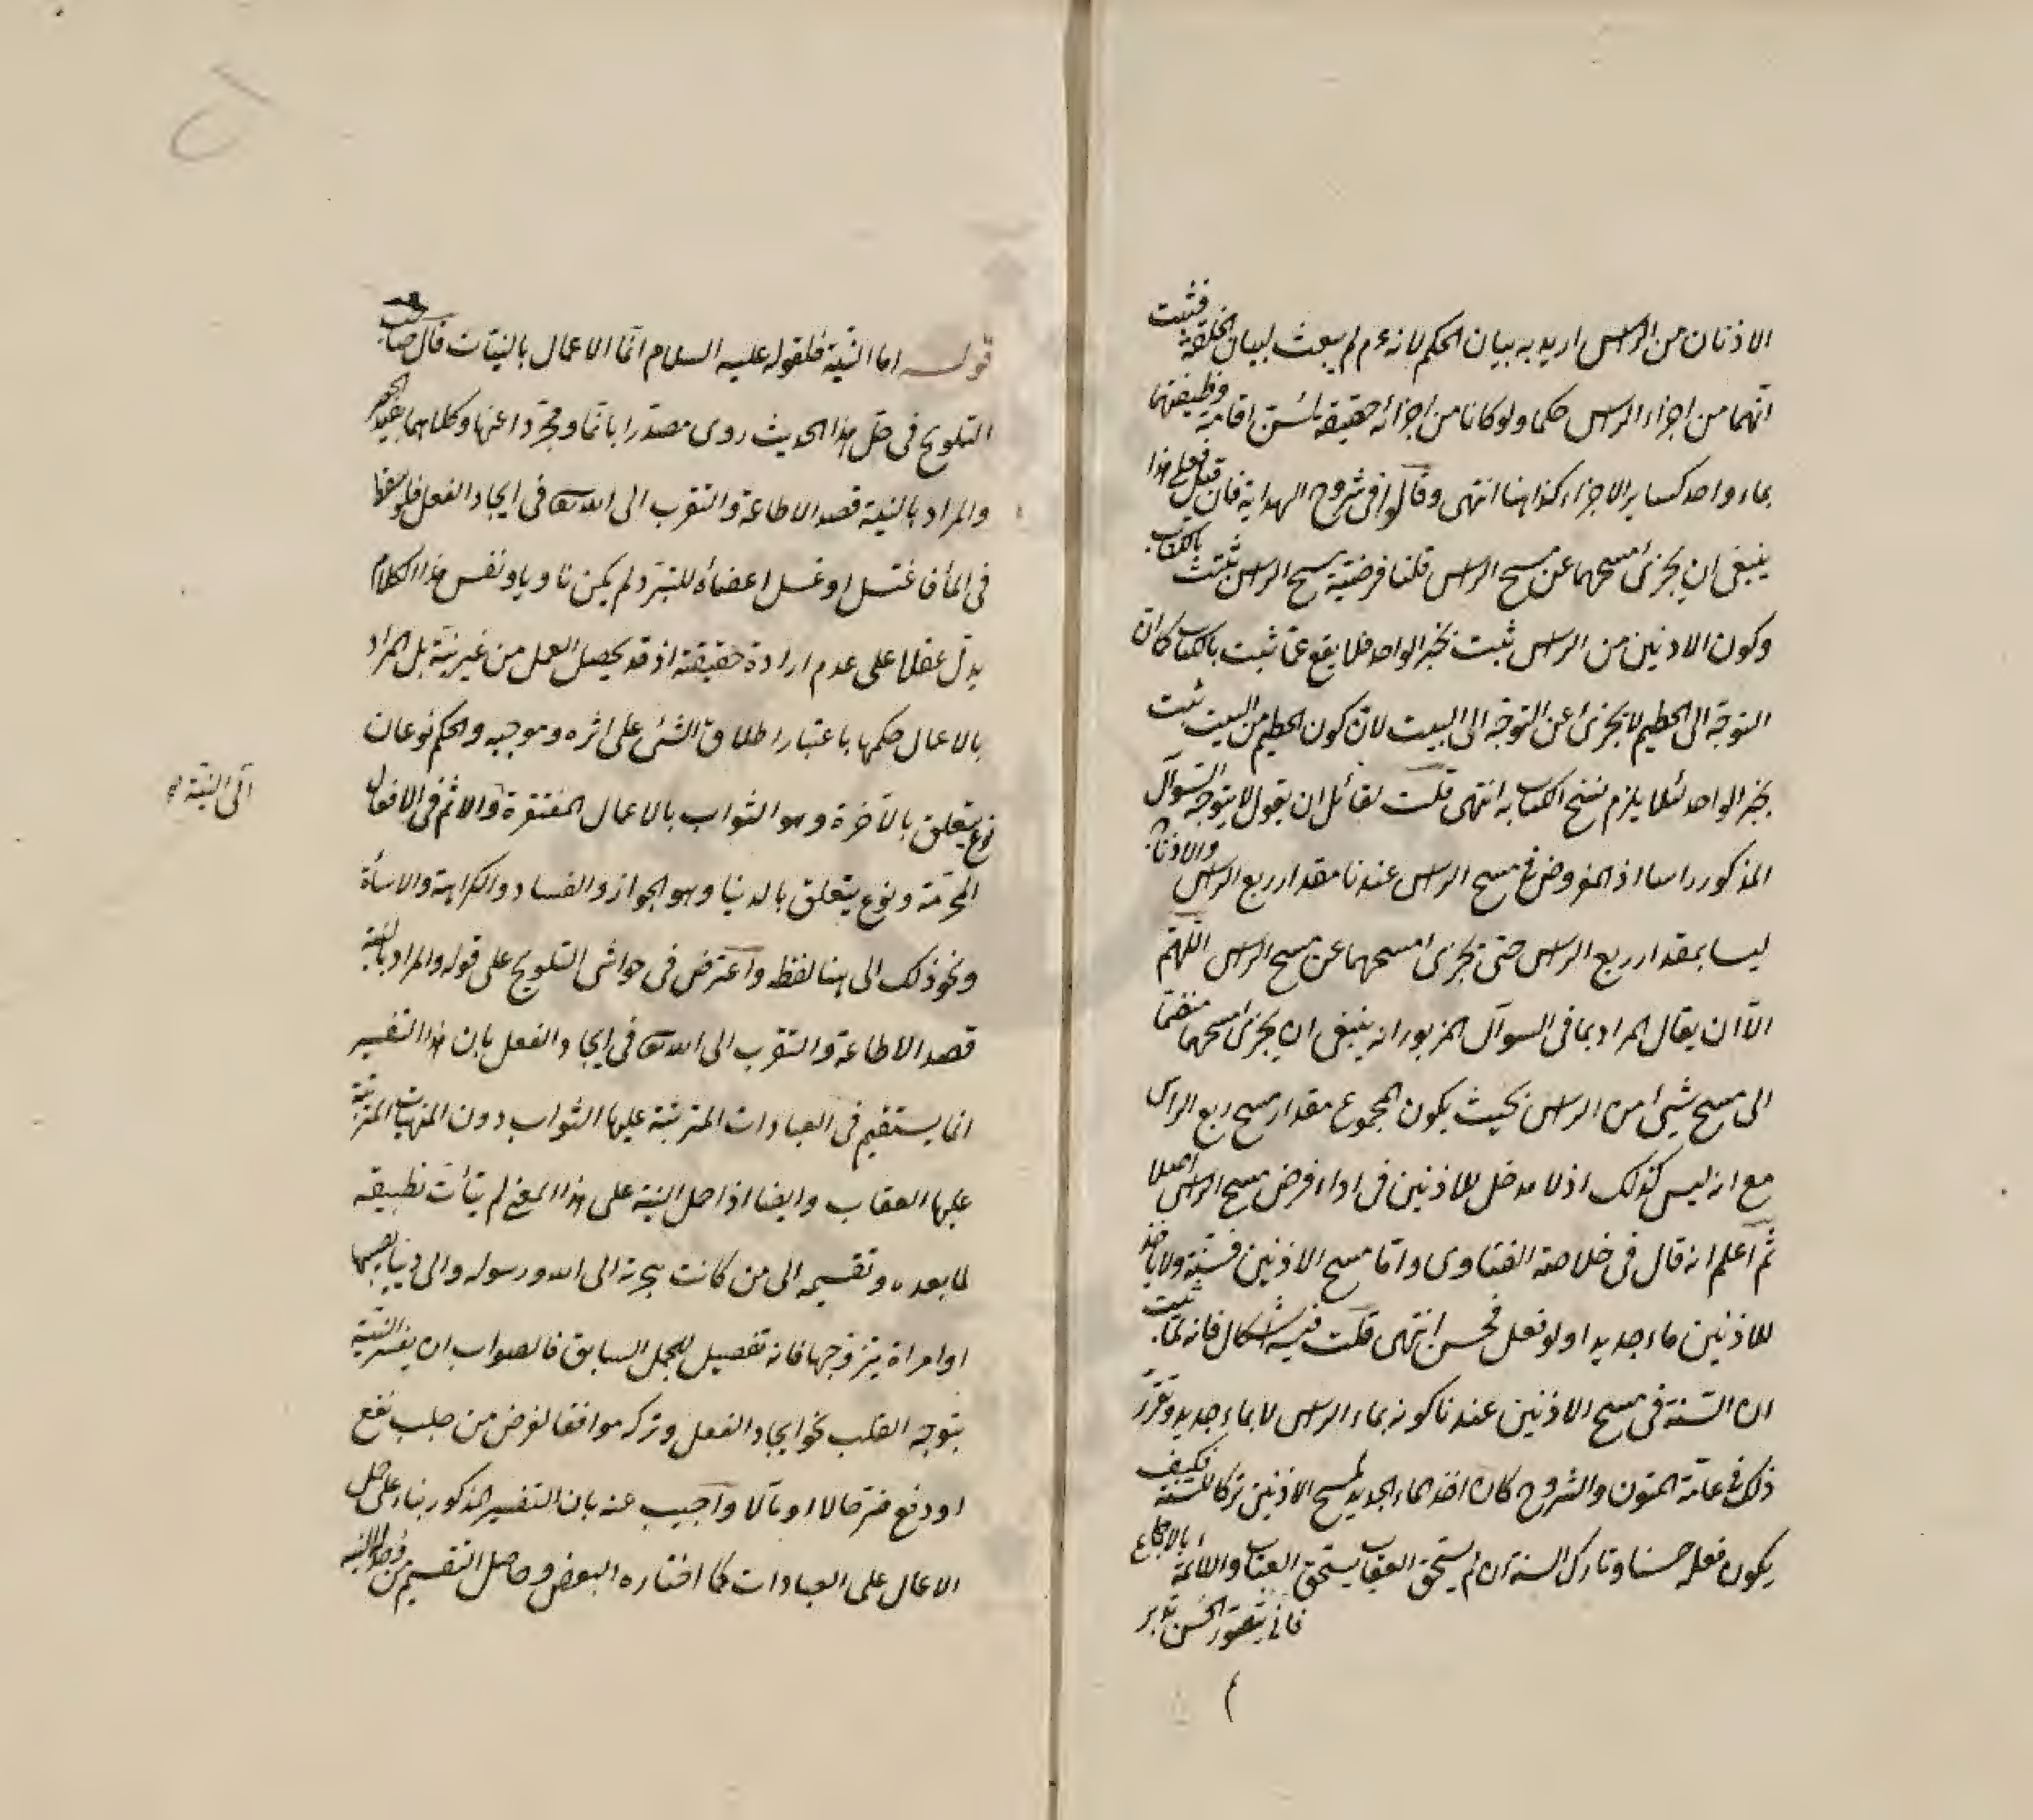 الاذنان من الراس اريد به بيان الحكم لانه عم لم يبعث لبيان الخلقة فثبت
انهما من اجزاء الراس حكما ولو كانا من اجزائه حقيقة لسن اقامة وظيفتهما
بماء واحد كساير الاجزاء كذا هنا انتهى وقالوا فى شروح الهداية فان قيل فعلى هذا
ينبغى ان يجزئ مسحهما عن مسح الراس قلنا فرضية مسح الراس ثبتت بالكتاب
وكون الاذنين من الراس ثبت بخبر الواحد فلا يقع عما ثبت بالكتاب كان
التوجه الى الحطيم لا يجزئ عن التوجه الى البيت لان كون الحطيم من البيت ثبت
بخبر الواحد لئلا يلزم نسخ الكتاب به انتهى قلت لقائل ان يقول لا يتوجه السؤال
المذكور راسا اذ المفروض فى مسح الراس عندنا مقدار ربع الراس والاذنان
ليسا بمقدار ربع الراس حتى يجزئ مسحهما عن مسح الراس اللهم
الا ان يقال المراد بما فى السوآل المزبور انه ينبغى ان يجزئ مسحهما منضما
الى مسح شئ من الراس بحيث يكون المجموع مقدار مسح ربع الراس
مع انه ليس كذلك اذ لا مدخل للاذنين فى اداء فرض مسح الراس اصلا
ثم اعلم انه قال فى خلاصة الفتاوى واما مسح الاذنين فسنة ولا ياخذ
للاذنين ماء جديدا ولو فعل فحسن انتهى قلت فيه اشكال فانه لما ثبت
ان السنة فى مسح الاذنين عندنا كونه بماء الراس لا بماء جديد وتقرر
ذلك فى عامة المتون والشروح كان اخذ الماء الجديد لمسح الاذنين تركا للسنة فكيف
يكون فعله حسنا وتارك السنة ان لم يستحق العقاب يستحق العتاب واللائمة بالاجماع
فانى يتصور الحسن تدبر
قوله اما النية فلقوله عليه السلام انما الاعمال بالنيات قال صاحب
التلويح فى حل هذا الحديث روى مصدرا بانما ومجردا عنها وكلاهما يفيد الحصر
والمراد بالنية قصد الاطاعة والتقرب الى الله تعالى فى ايجاد الفعل فلو سقط
فى الماء فاغتسل او غسل اعضاه للتبرد لم يكن ناويا ونفس هذا الكلام
يدل عقلا على عدم ارادة حقيقته اذ قد يحصل العمل من غير نية بل المراد
بالاعمال حكمها باعتبار اطلاق الشئ على اثره وموجبه والحكم نوعان
نوع يتعلق بالآخرة وهو الثواب بالاعمال المفتقرة والاثم فى الافعال
الى النية
المحرمة ونوع يتعلق بالدنيا وهو الجواز والفساد والكراهة والاساة
ونحو ذلك الى هنا لفظه واعترض فى حواشى التلويح على قوله والمراد بالنية
قصد الاطاعة والتقرب الى الله تعالى فى ايجاد الفعل بان هذا التفسير
انما يستقيم فى العبادات المترتبة عليها الثواب دون المنهيات المترتبة
عليها العقاب وايضا اذا حمل النية على هذا المعنى لم يتأت تطبيقه
لما بعده وتقسيمه الى من كانت هجرته الى الله ورسوله والى دنيا يصيبها
او امراة يتزوجها فانه تفصيل للمجمل السابق فالصواب ان يفسر النية
بتوجه القلب نحو ايجاد الفعل وتركه موافقا لغرض من جلب نفع
او دفع ضر حالا او مآلا واجيب عنه بان التفسير المذكور بناء على حمل
الاعمال على العبادات كما اختاره البعض وحاصل التقسيم من قصد